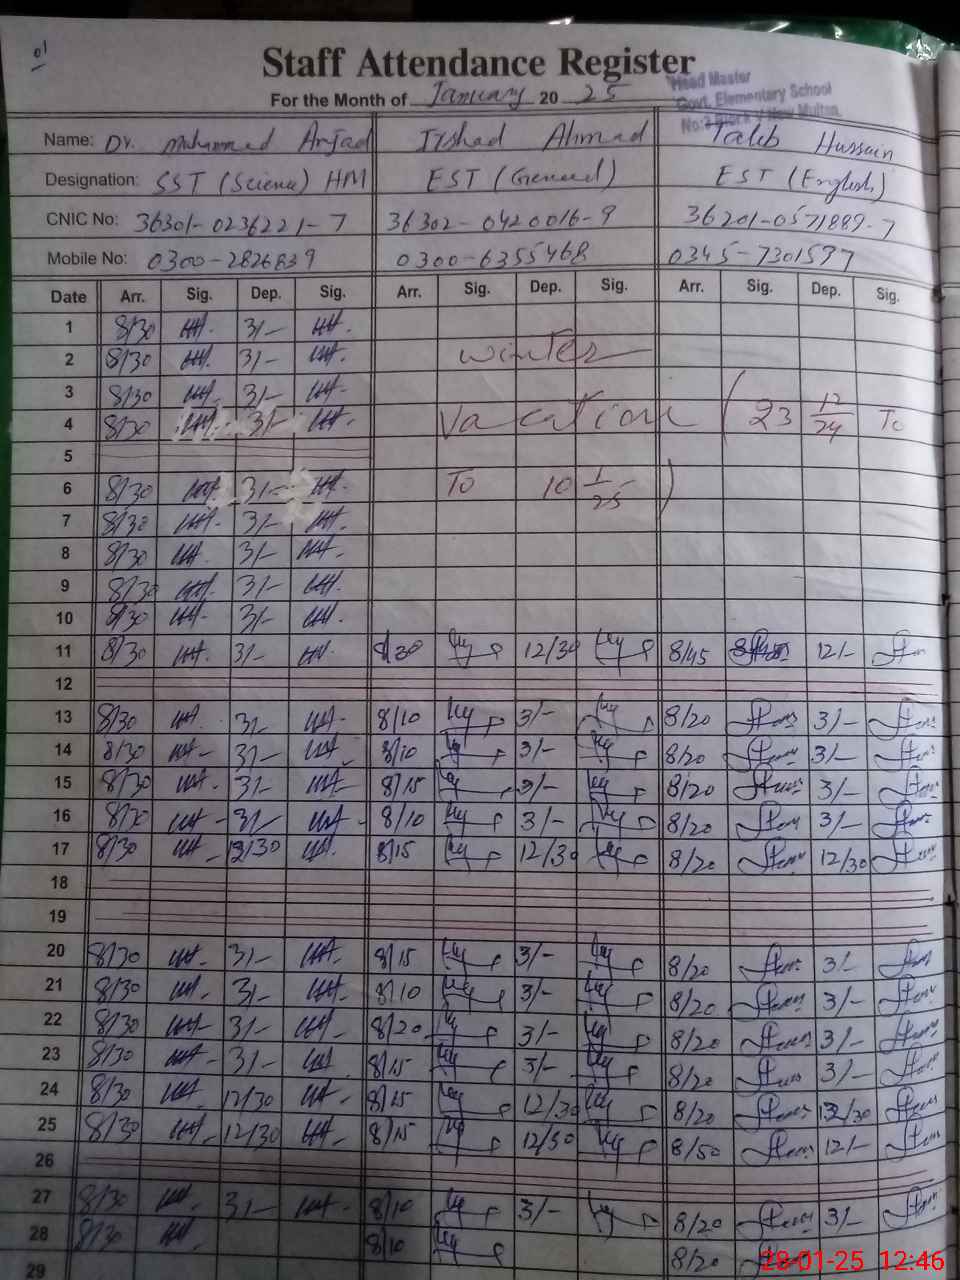 01
Staff Attendance Register
For the Month of January 20 25
Head Master
Govt. Elementary School
No:2 Block Y New Multan.
Name: Dr. Muhammad Amjad Irshad Ahmad Talib Hussain
Designation: SST (Science) HM EST (General) EST (English)
CNIC No: 36301-0236221-7 36302-0420016-9 36201-0571889-7
Mobile No: 0300-2826839 0300-6355468 0345-7301597
Date Arr. Sig. Dep. Sig. Arr. Sig. Dep. Sig. Arr. Sig. Dep. Sig.
1 8/30 3/-
2 8/30 3/- winter
3 8/30 3/-
4 8/30 3/- Vacation (23 12/24 To
5
6 8/30 3/- To 10 1/25 )
7 8/30 3/-
8 8/30 3/-
9 8/30 3/-
10 8/30 3/-
11 8/30 3/- 8/30 12/30 8/45 12/-
12
13 8/30 3/- 8/10 3/- 8/20 3/-
14 8/30 3/- 8/10 3/- 8/20 3/-
15 8/30 3/- 8/15 3/- 8/20 3/-
16 8/30 3/- 8/10 3/- 8/20 3/-
17 8/30 12/30 8/15 12/30 8/20 12/30
18
19
20 8/30 3/- 8/15 3/- 8/20 3/-
21 8/30 3/- 8/10 3/- 8/20 3/-
22 8/30 3/- 8/20 3/- 8/20 3/-
23 8/30 3/- 8/15 3/- 8/20 3/-
24 8/30 12/30 8/15 12/30 8/20 12/30
25 8/30 12/30 8/15 12/30 8/50 12/-
26
27 8/30 3/- 8/10 3/- 8/20 3/-
28 8/30 8/10 8/20
29
28-01-25 12:46